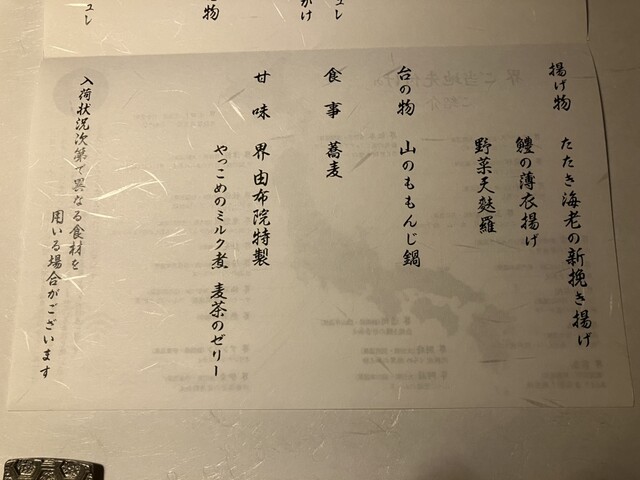 揚げ物 たたき海老の新挽き揚げ
鱧の薄衣揚げ
野菜天麩羅
台の物 山のももんじ鍋
食事 蕎麦
甘味 界 由布院特製
やっこめのミルク煮 麦茶のゼリー
入荷状況次第で異なる食材を
用いる場合がございます